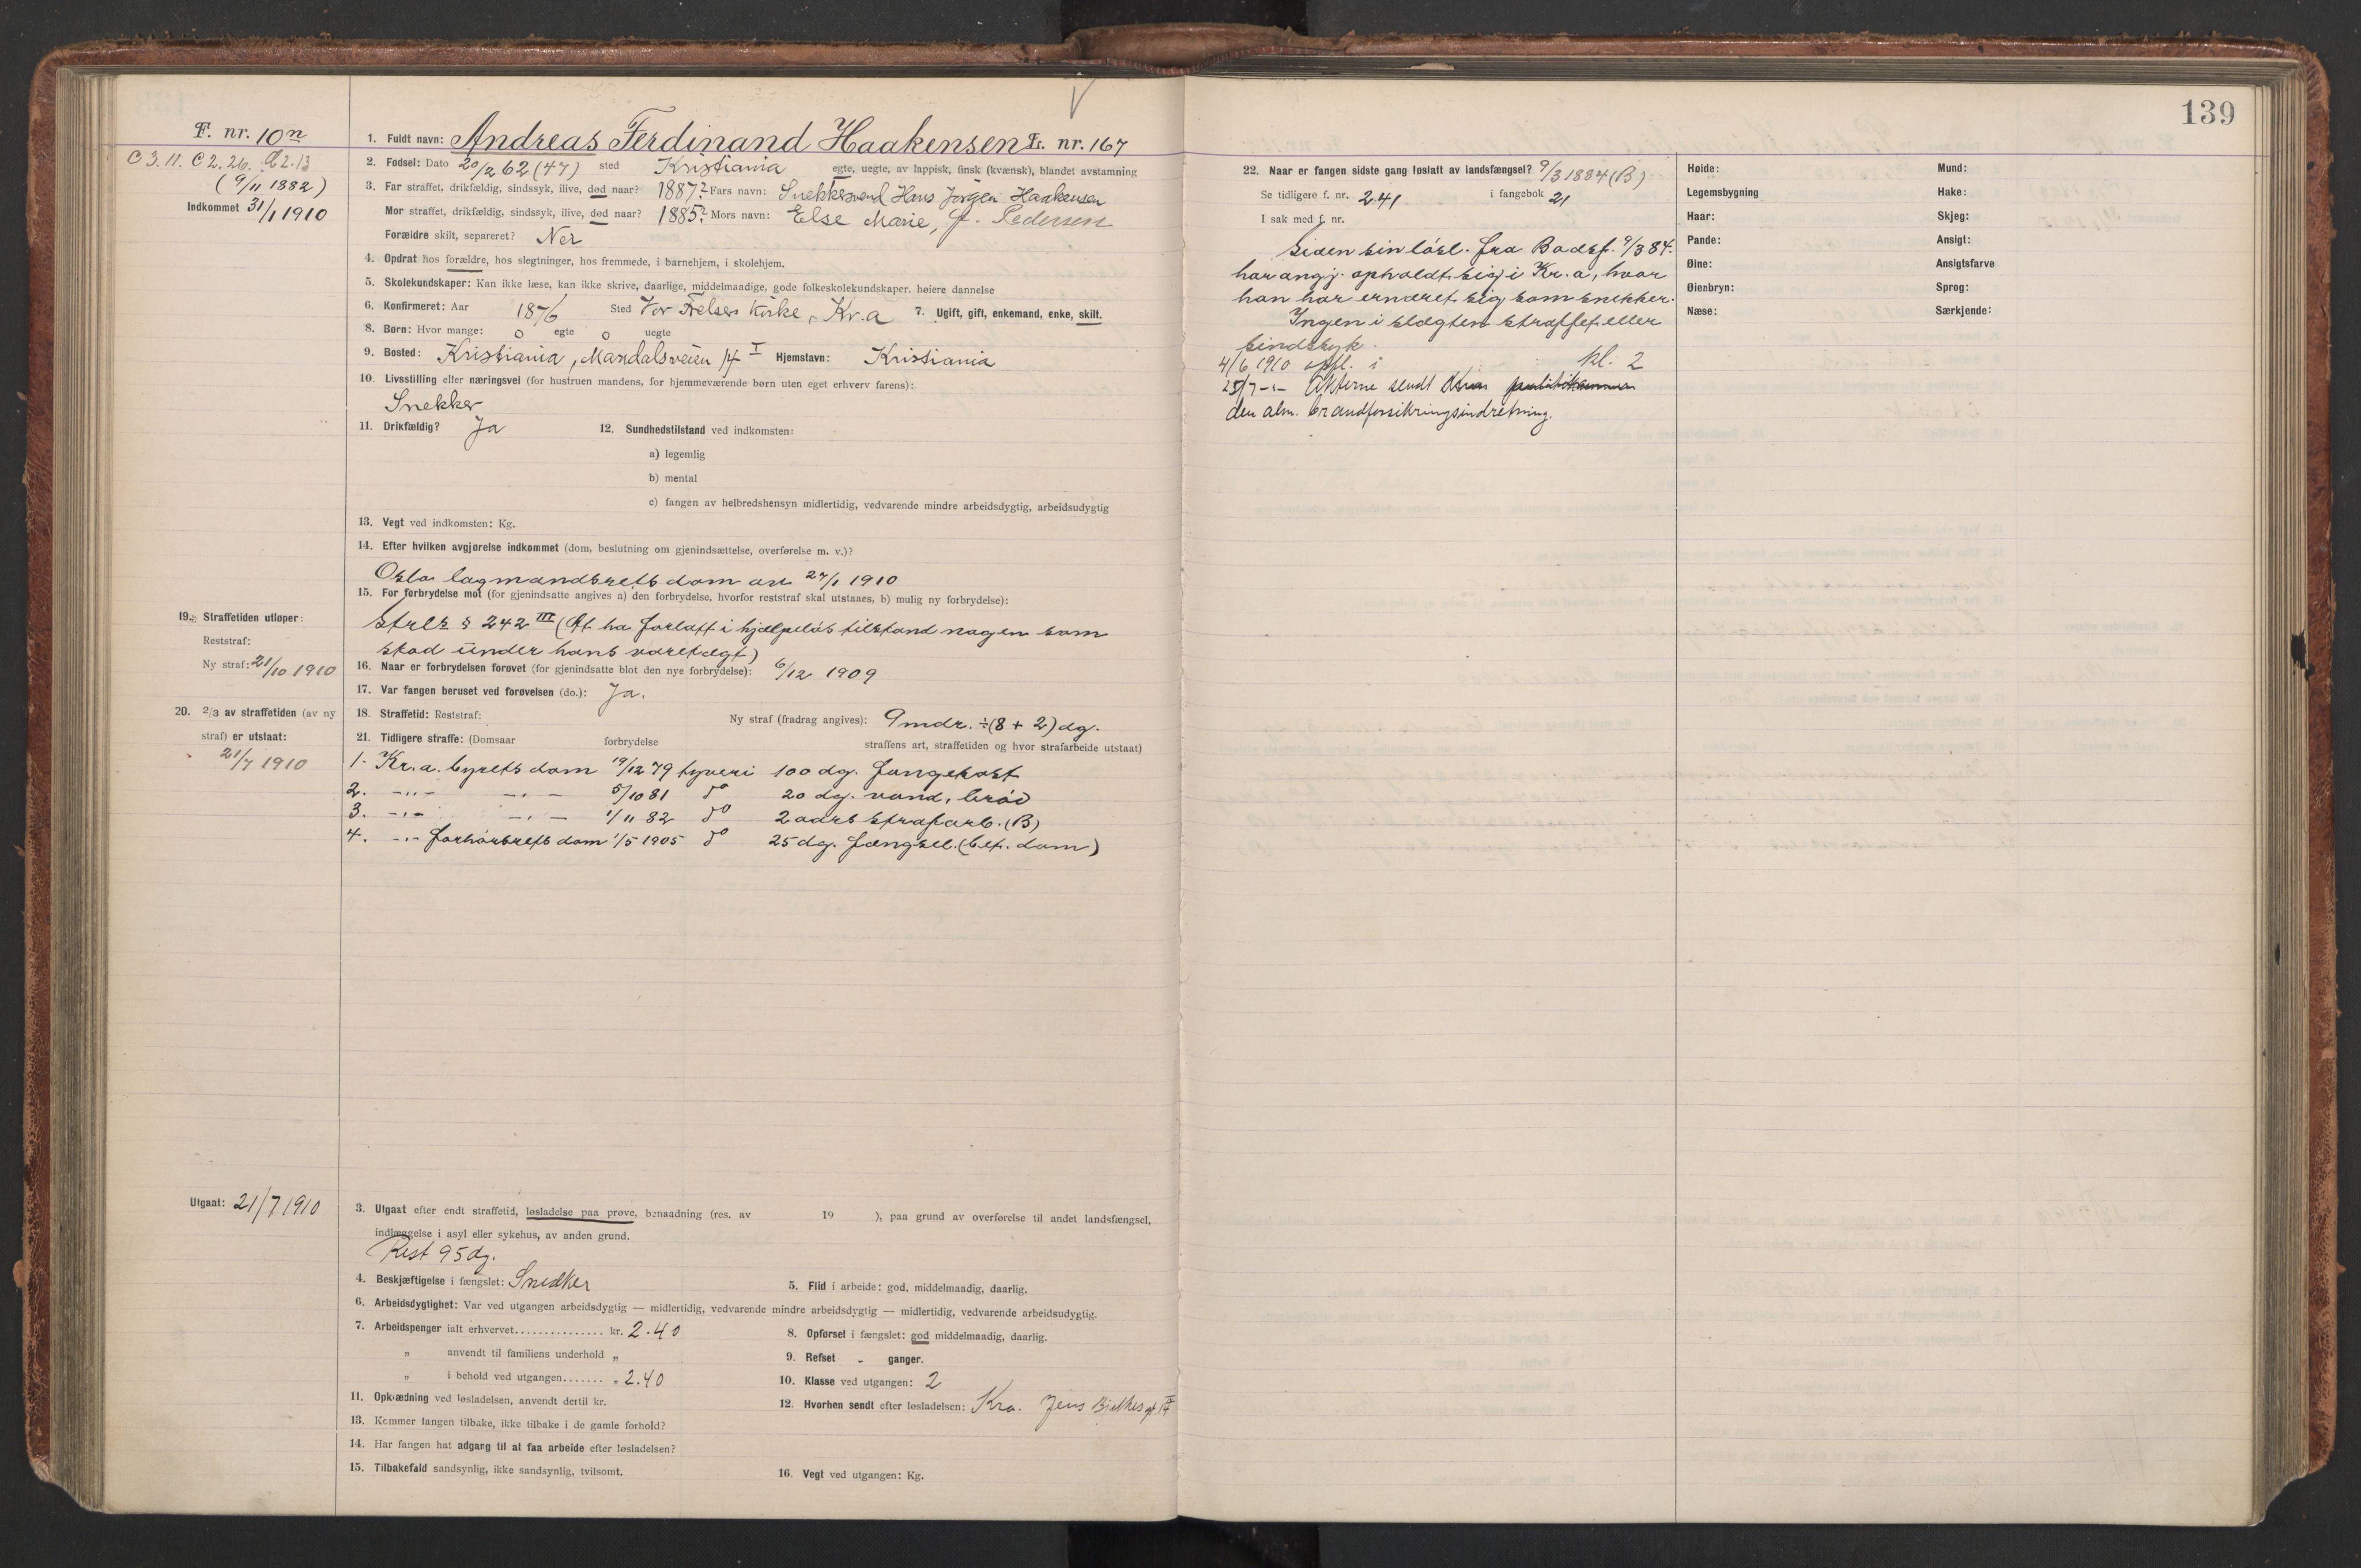 F. nr. 10n
C 3. 11. C 2. 26. 2. 13
(9/11 1882)
Indkommet 31/1 1910
1. Fuldt navn: Andreas Ferdinand Haakensen Fr. nr. 167
2. Fødsel: Dato 20/2 62 (47) sted Kristiania egte, uegte, av lappisk, finsk (kvænsk), blandet avstamning
3. Far straffet, drikfældig, sindssyk, ilive, død naar? 1887? Fars navn: Snekkersvend Hans Jørgen Haakensen
Mor straffet, drikfældig, sindssyk, ilive, død naar? 1885? Mors navn: Else Marie, f. Pedersen
Forældre skilt, separeret? Nei
4. Opdrat hos forældre, hos slegtninger, hos fremmede, i barnehjem, i skolehjem.
5. Skolekundskaper: Kan ikke læse, kan ikke skrive, daarlige, middelmaadige, gode folkeskolekundskaper. høiere dannelse
6. Konfirmeret: Aar 1876 Sted Vor Frelsers Kirke, Kr.a 7. Ugift, gift, enkemand, enke, skilt.
8. Børn: Hvor mange: 0 egte 0 uegte
9. Bosted: Kristiania, Maridalsveien 14 I Hjemstavn: Kristiania
10. Livsstilling eller næringsvei (for hustruen mandens, for hjemmeværende børn uten eget erhverv farens):
Snekker
11. Drikfældig? Ja 12. Sundhedstilstand ved indkomsten:
a) legemlig
b) mental
c) fangen av helbredshensyn midlertidig, vedvarende mindre arbeidsdygtig, arbeidsudygtig
13. Vegt ved indkomsten: Kg.
14. Efter hvilken avgjørelse indkommet (dom, beslutning om gjenindsættelse, overførelse m. v.)?
Oslo lagmandsretts dom av 27/1 1910
15. For forbrydelse mot (for gjenindsatte angives a) den forbrydelse, hvorfor reststraf skal utstaaes, b) mulig ny forbrydelse):
strl § 242 III (At ha forlatt i hjælpeløs tilstand nogen som
stod under hans varetægt)
16. Naar er forbrydelsen forøvet (for gjenindsatte blot den nye forbrydelse): 6/12 1909
17. Var fangen beruset ved forøvelsen (do.): Ja.
18. Straffetid: Reststraf: Ny straf (fradrag angives): 9 mdr. ÷ (8 + 2) dg.
19. Straffetiden utløper:
Reststraf:
Ny straf: 21/10 1910
20. 2/3 av straffetiden (av ny
straf) er utstaat:
21/7 1910
21. Tidligere straffe: (Domsaar forbrydelse straffens art, straffetiden og hvor strafarbeide utstaat)
1. Kr.a. byretts dom 19/12 79 tyveri 100 dg. fangekost
2. -"- -"- 5/10 81 do 20 dg. vand, brød
3. -"- -"- 1/11 82 do 2 aars strafarb. (B)
4. -"- forhørsretts dom 1/5 1905 do 25 dg. fængsel. (bet. dom)
Utgaat: 21/7 1910
3. Utgaat efter endt straffetid, løsladelse paa prøve, benaadning (res. av 19 ), paa grund av overførelse til andet landsfængsel,
indlæggelse i asyl eller sykehus, av anden grund.
Rest 95 dg.
4. Beskjæftigelse i fængslet: Snedker 5. Flid i arbeide: god, middelmaadig, daarlig.
6. Arbeidsdygtighet: Var ved utgangen arbeidsdygtig — midlertidig, vedvarende mindre arbeidsdygtig — midlertidig, vedvarende arbeidsudygtig.
7. Arbeidspenger ialt erhvervet............... kr. 2.40 8. Opførsel i fængslet: god middelmaadig, daarlig.
" anvendt til familiens underhold " 9. Refset - ganger.
" i behold ved utgangen....... " 2.40 10. Klasse ved utgangen: 2
11. Opklædning ved løsladelsen, anvendt dertil kr. 12. Hvorhen sendt efter løsladelsen: Kra. Jens Bjelkes gt. 14
13. Kommer fangen tilbake, ikke tilbake i de gamle forhold?
14. Har fangen hat adgang til at faa arbeide efter løsladelsen?
15. Tilbakefald sandsynlig, ikke sandsynlig, tvilsomt. 16. Vegt ved utgangen: Kg.
139
22. Naar er fangen sidste gang løslatt av landsfængsel? 9/3 1884 (B)
Se tidligere f. nr. 241 i fangebok 21
I sak med f. nr.
Siden sin løsl. fra Bodsf. 9/3 84.
har angj. opholdt sig i Kr.a, hvor
han har ernæret sig som snekker.
Ingen i slægten straffet eller
sindssyk.
4/6 1910 opfl. i kl. 2
25/7 -"- Akterne sendt politikammer
den alm. brandforsikringsindretning.
Høide: Mund:
Legemsbygning Hake:
Haar: Skjeg:
Pande: Ansigt:
Øine: Ansigtsfarve
Øienbryn: Sprog:
Næse: Særkjende: